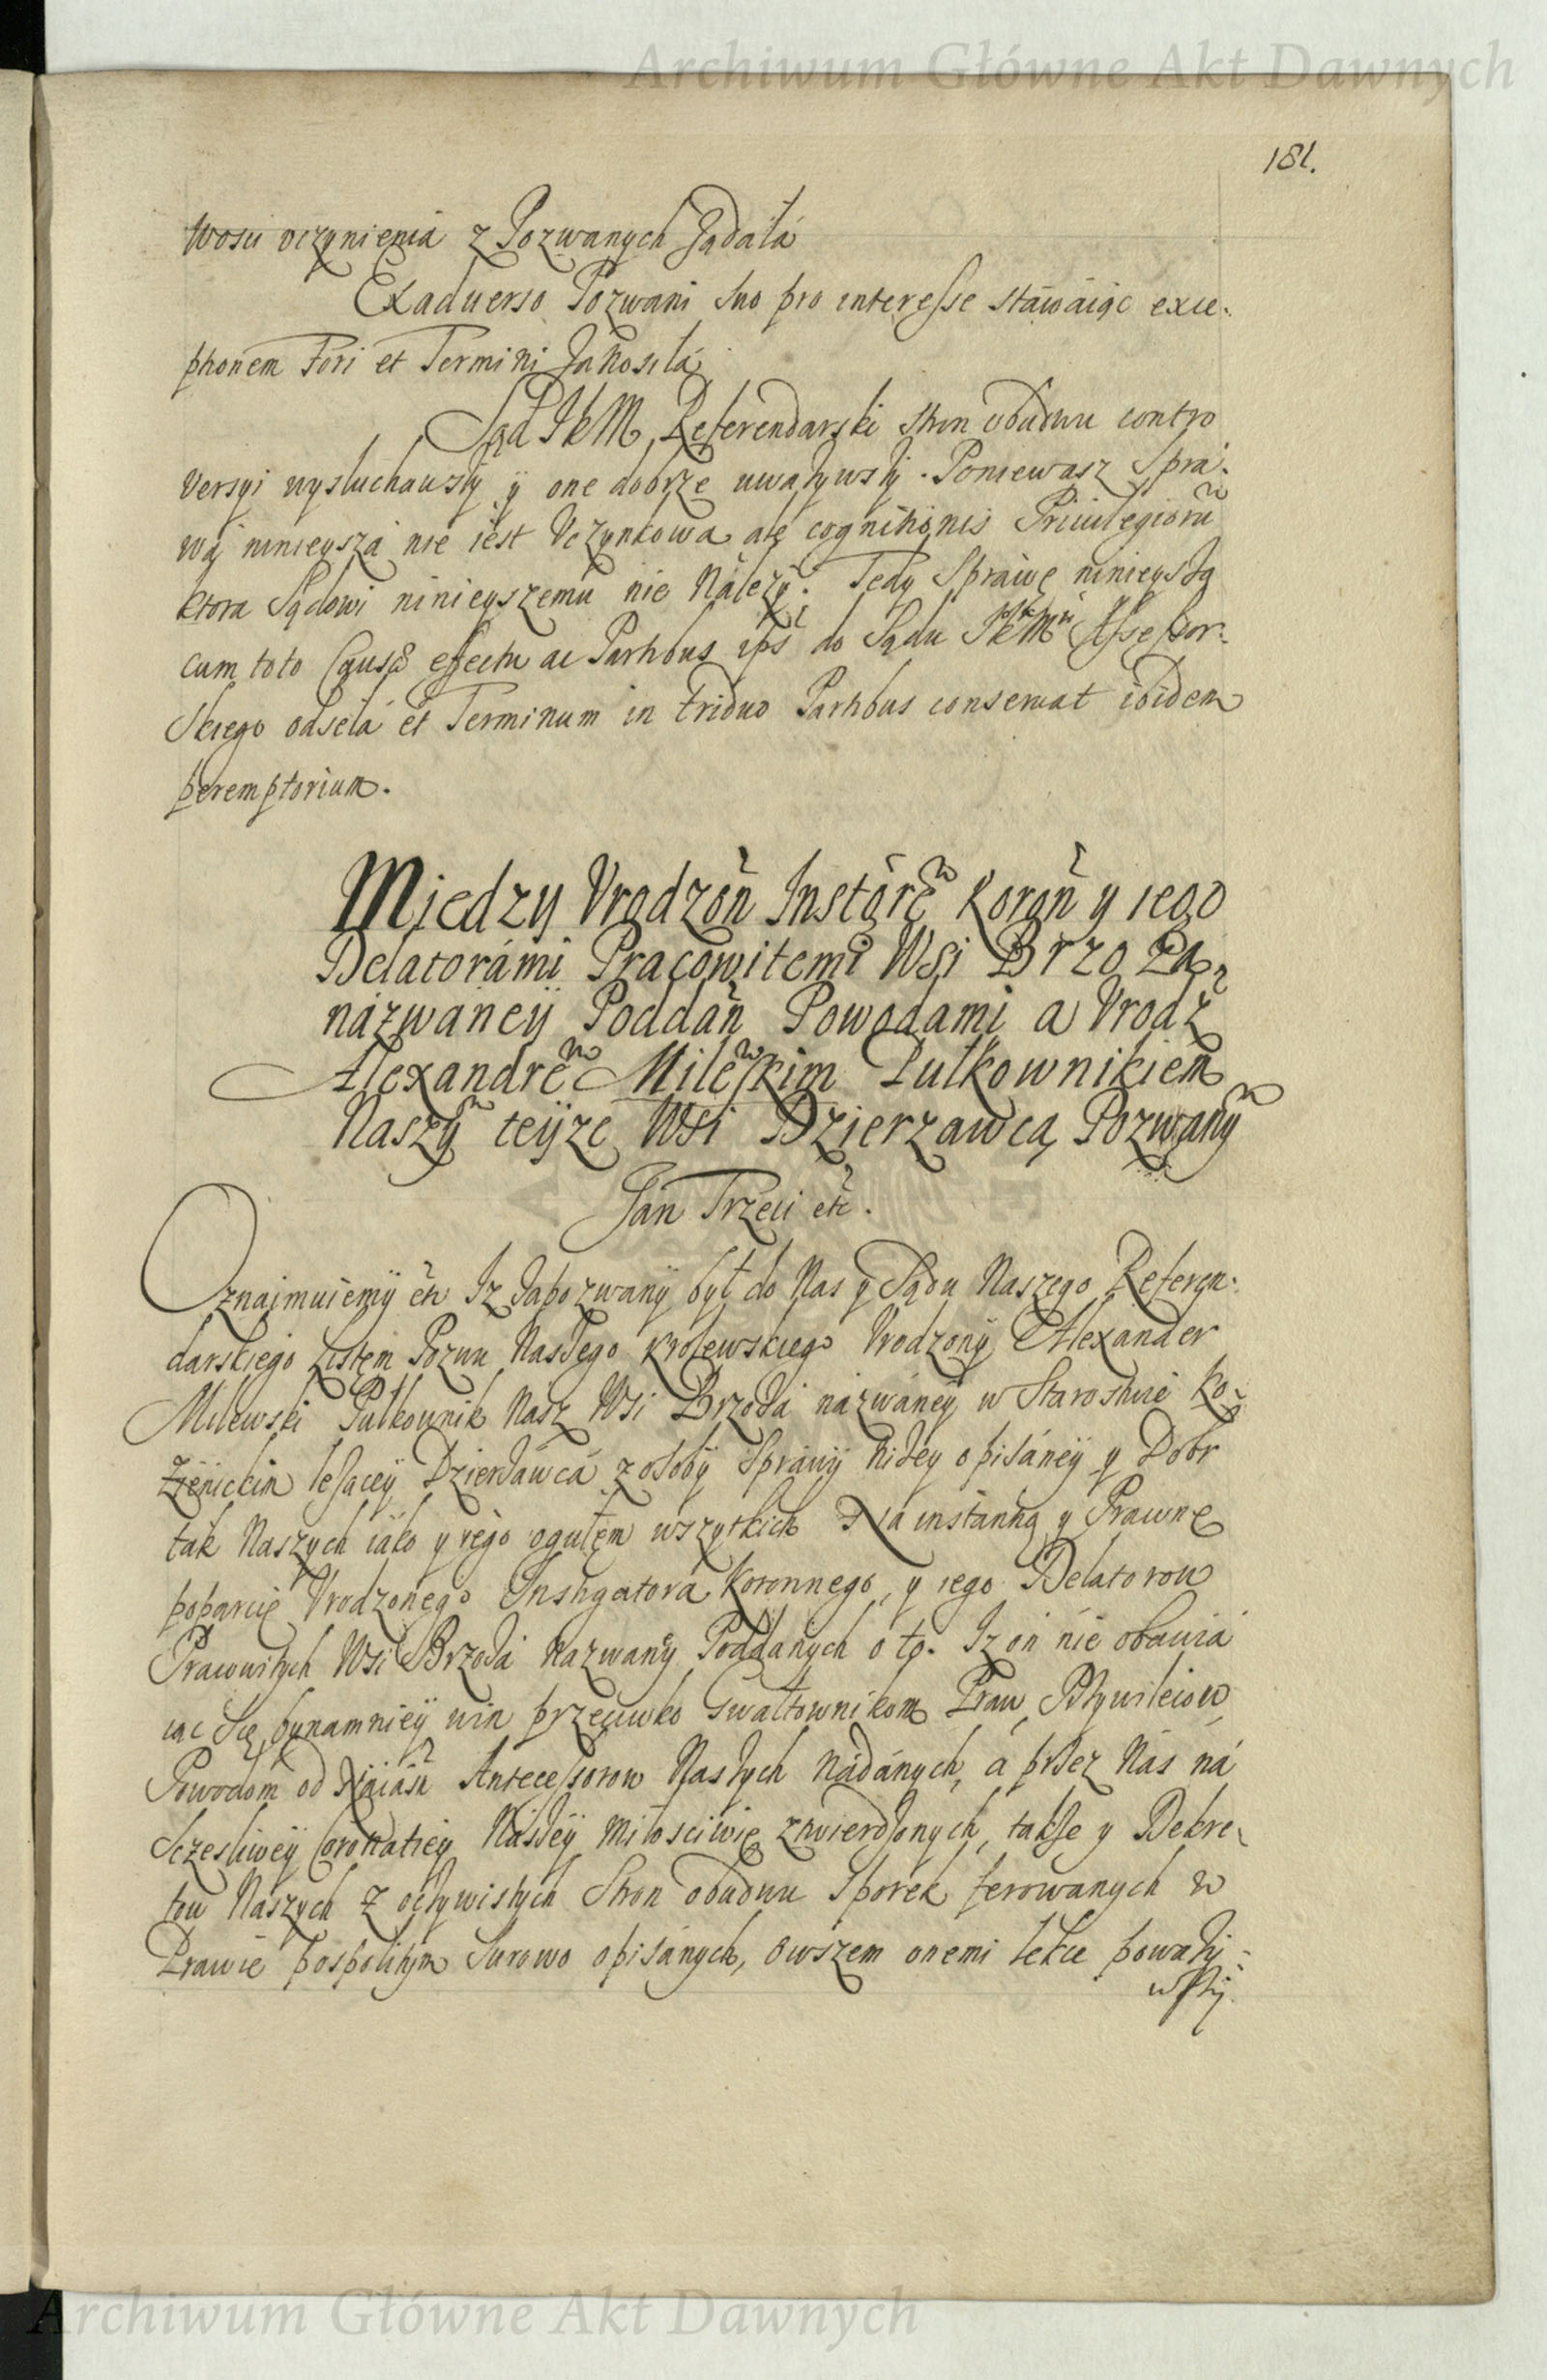 Archiwum Główne Akt Dawnych
181.
wosci vczynienia z Pozwanych żądáłá
Exaduerso Pozwani suo pro interesse stáwáiąc exce-
ptionem Fori et Termini założełá
Sąd JKM Referendarski stron obudwu contro
versyi wysłuchawszy y one dobrze uważywszy. Poniewasz Spra-
wá ninieysza nie iest Vczynkowa ale cognitionis Priuilegiorũ
ktora Sądowi ninieyszemu nie Należy. Tedy Spráwę ninieyszą
cum toto Causæ effectu ac Partibus ips do Sądu JKMci Assessor-
skiego odsełá et Terminum in triduo Partibus conseruat ibidem
peremptorium.
Miedzy Vrodzoñ Instgrẽ Koroñ y iego
Delatorámi Pracowitemi Wsi Brzoza
názwaney Poddañ Powodami a Vrodz
Alexandrẽ Milewskim Pułkownikiem
Naszỹ teyze Wsi Dzierzawcą Pozwanỹ
Jan Trzeci etc.
Oznajmuiemy etc Iz zapozwany był do Nas y Sądu Naszego Referen-
darskiego Listem Pozwu Naszego Krolewskiego Vrodzony Alexander
Milewski Pułkownik Nasz Wsi Brzozá názwáney w Starostwie Ko-
zienickim leżącey Dzierżáwcá z osoby spráwy niżey opisáney y Dobr
ták Naszych iáko y iego ogułem wszytkich Ná instántią y Prawne
poparcie Vrodzonego Instigatorá Koronnego, y iego Delatorow
Pracowitych Wsi Brzozá nazwaney Poddanych o to. Iz on nie obawiá
iąc się bynamniey win przeciwko Gwałtownikom Praw, Przywileiow,
Powodom od Náiásn Antecessorow Naszych nádánych, á przez Nás ná
Sczesliwey Coronatiey Nászey miłosciwie ztwierdzonych, także y Dekre-
tow Naszych z oczywistych Stron obudwu sporek ferowanych w
Prawie pospolitym surowo opisánych, owszem onemi lekce poważy-
wszy
Archiwum Główne Akt Dawnych